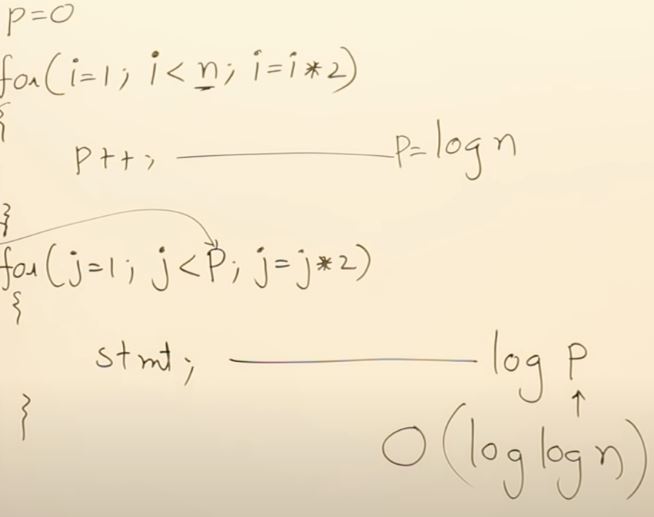 p=0
for(i=1; i<n; i=i*2)
{
p++; P=log n
}
for(j=1; j<P; j=j*2)
{
stmt; log P
↑
}
O(log log n)